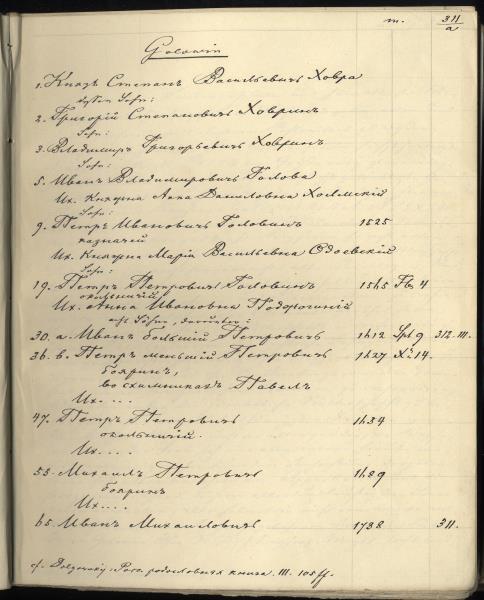 m. 311/a
Golowin
1. Князь Степанъ Васильевичъ Ховра
dessen Sohn:
2. Григорій Степановичъ Ховринъ
Sohn:
3. Владимиръ Григорьевичъ Ховринъ
Sohn:
5. Иванъ Владимировичъ Голова
Ux. Княжна Анна Даниловна Холмскій
Sohn:
9. Петръ Ивановичъ Головинъ 1525
казначей
Ux. Княжна Марія Васильевна Одоевскій
Sohn:
19. Петръ Петровичъ Головинъ 1565 Fbr 4
окольничій
Ux. Анна Ивановна
acht Söhne, darunter:
30. a. Иванъ большій Петровичъ 1612 Spt 9 312.III.
36. b. Петръ меньшій Петровичъ 1627 X. 14.
Бояринъ,
во схимникахъ Павелъ
Ux. ....
47. Петръ Петровичъ 1654
окольничій.
Ux. ....
55. Михаилъ Петровичъ 1689
Бояринъ
Ux. ....
65. Иванъ Михаиловичъ 1738 311.
cf. Dolgoruky: Росс. родословная книга. III. 105 ff.